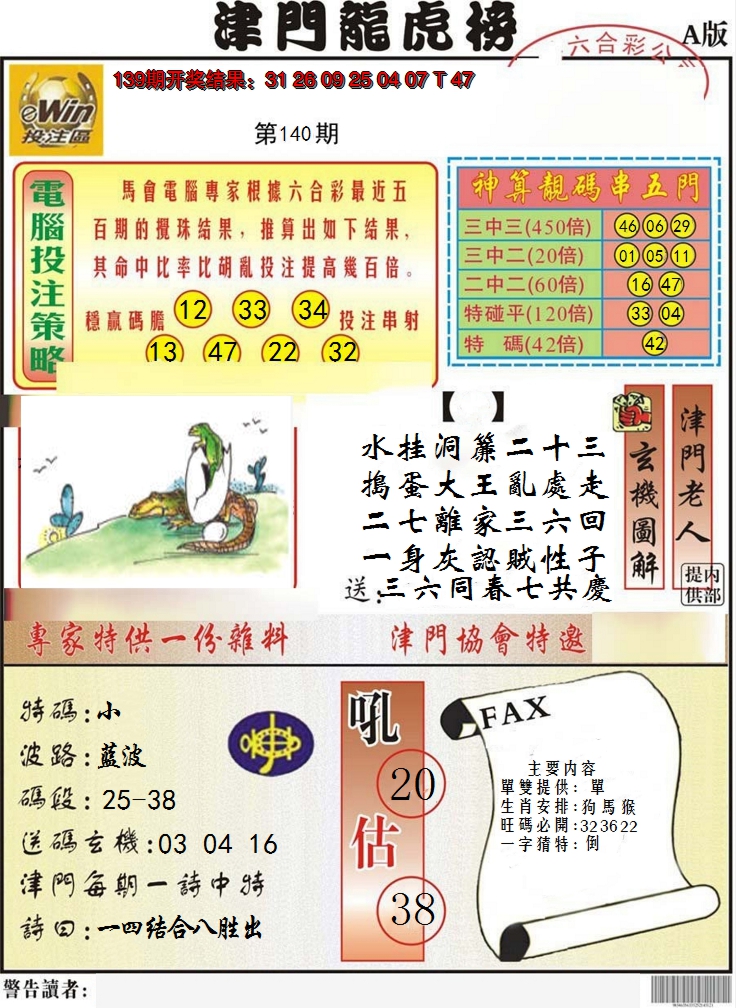 津門龍虎榜
A版
六合彩公
139期开奖结果：31 26 09 25 04 07 T 47
eWin
投注區
第140期
電腦投注策略
馬會電腦專家根據六合彩最近五
百期的攪珠结果，推算出如下结果，
其命中比率比胡亂投注提高幾百倍。
穩赢碼膽 12 33 34 投注串射
13 47 22 32
神算靚碼串五門
三中三(450倍) 46 06 29
三中二(20倍) 01 05 11
二中二(60倍) 16 47
特碰平(120倍) 33 04
特 碼(42倍) 42
【 】
水挂洞簾二十三
搗蛋大王亂處走
二七離家三六回
一身灰認賊性子
送：三六同春七共慶
玄機圖解
津門老人
内部提供
專家特供一份雜料
津門協會特邀
特碼：小
波路：藍波
碼段：25-38
送碼玄機：03 04 16
津門每期一詩中特
詩曰：一四结合八胜出
吼
20
估
38
FAX
主要内容
單雙提供：單
生肖安排：狗馬猴
旺碼必開：323622
一字猜特：倒
警告讀者：